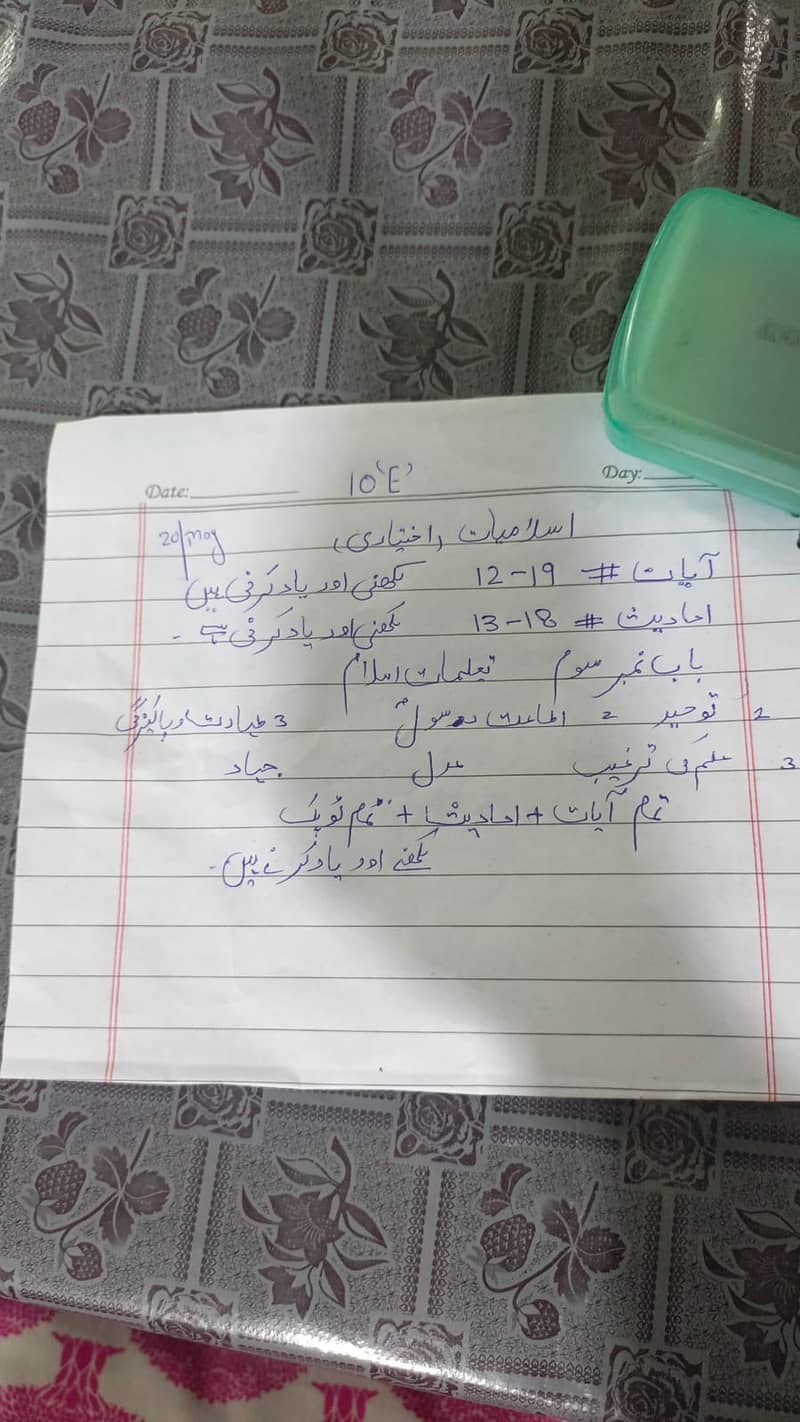 Date: 10 'E' Day:
اسلامیات (اختیاری) 20/may
آیات # 12-19 لکھنی اور یاد کرنی ہیں
احادیث # 13-18 لکھنی اور یاد کرنی ہے۔
باب نمبر سوم تعلیمات اسلام
1 توحید 2 اطاعت رسولؐ 3 طہارت اور پاکیزگی
3 علم کی ترغیب عدل جہاد
تمام آیات + احادیث + تمام ٹوپک
لکھنے اور یاد کرنے ہیں۔